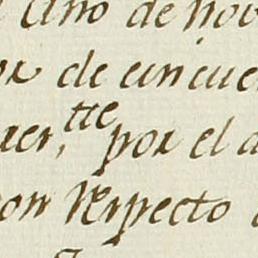 Uno de nov
or de cincue
aer,tte por el a
con respecto